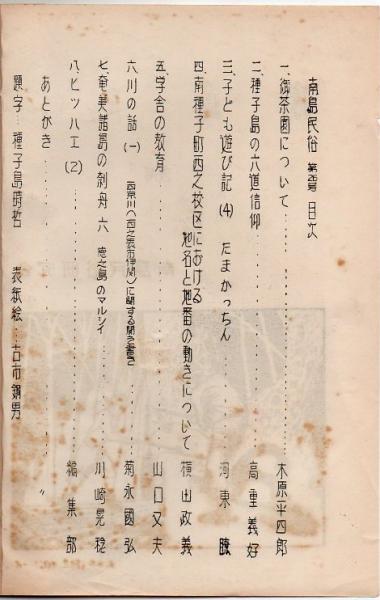 南島民俗 第25号 目次
一、御茶園について……木原平四郎
二、種子島の六道信仰……高重義好
三、子ども遊び記(4) たまかっちん……河東 
四、南種子町西之校区における
地名と地番の動きについて 横田政義
五、学舎の教育……山口又夫
六、川の話(一) 西京川(西之表市伊関)に関する聞き書き 菊永國弘
七、奄美諸島の刳舟 六 徳之島のマルシイ……川崎晃稔
八、ヒッハエ(2)……編集部
あとがき……〃
題字…種子島時哲 表紙絵…古市 男